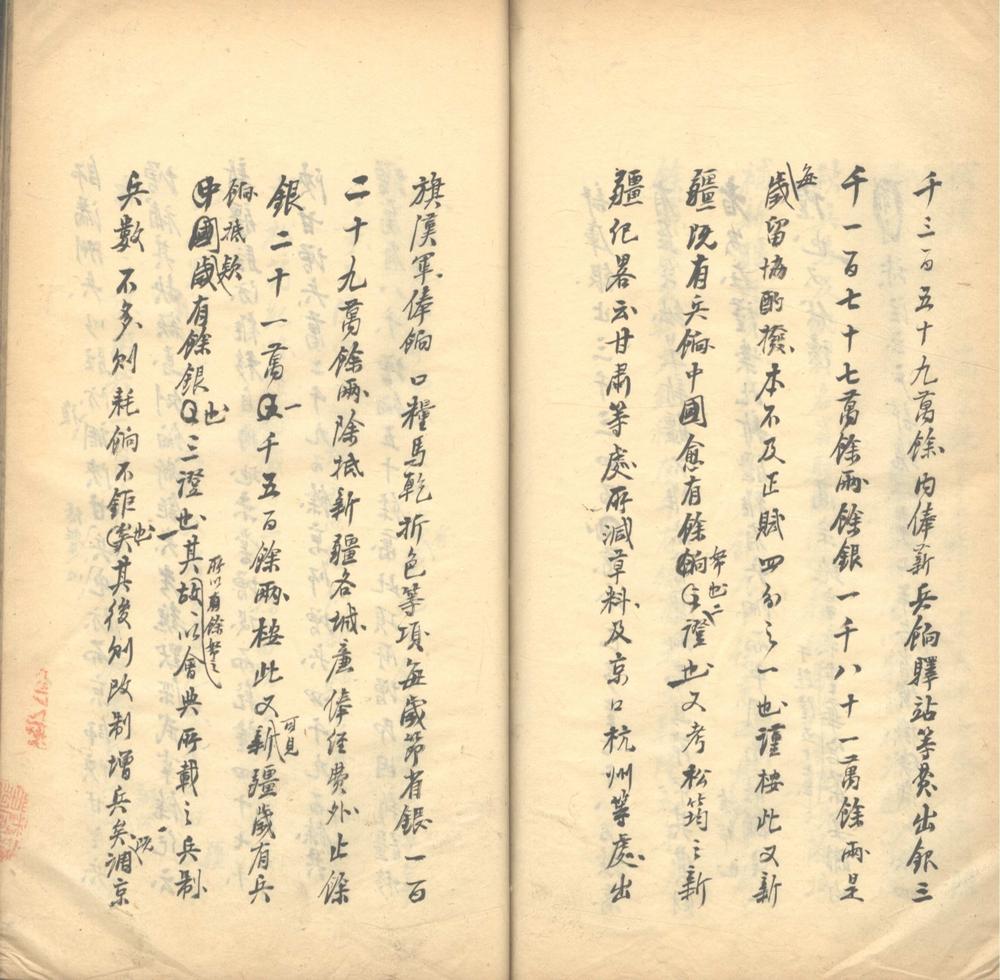 千三百五十九萬餘內俸薪兵餉驛站等費出銀三
千一百七十七萬餘兩餘銀一千八十一二萬餘兩是
每歲留協酌撥本不及正賦四分之一也謹按此又新
疆既有兵餉中國愈有餘帑也二證也又考松筠之新
疆纪畧云甘肅等處所減草料及京口杭州等處出
旗漢軍俸餉口糧馬乾折色等項每歲節省銀一百
二十九萬餘兩除抵新疆各城廉俸经費外止餘
銀二十一萬一千五百餘兩桉此又可見新疆歲有兵
餉抵款
中國歲有餘銀也三證也其所以有餘帑之故以會典所載之兵制
兵數不多則耗餉不鉅也其後則改制增兵矣既调京